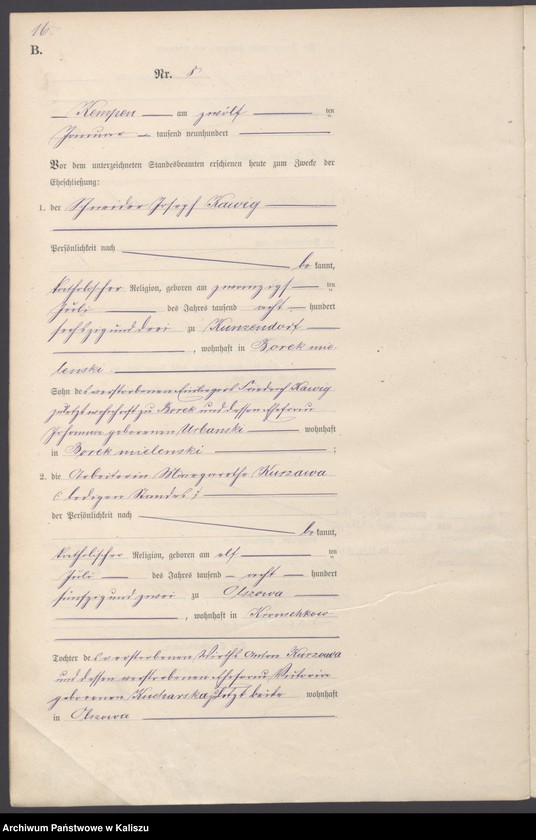 16.
B.
Nr. 8
Kempen am zwölf ten
Januar tausend neunhundert
Vor dem unterzeichneten Standesbeamten erschienen heute zum Zwecke der
Eheschließung:
1. der Schneider Joseph Kawig
Persönlichkeit nach
be kannt,
katholischer Religion, geboren am zwanzigs ten
Juli des Jahres tausend acht hundert
sechszig und drei zu Kunzendorf
, wohnhaft in Borek mie
lenski
Sohn des verstorbenen Friedrich Kawig
zuletzt wohnhaft zu Borek und dessen Ehefrau
Johanna geborenen Urbanski wohnhaft
in Borek mielenski ;
2. die Arbeiterin Margarethe Kurzawa
(ledigen Standes)
der Persönlichkeit nach
be kannt,
katholischer Religion, geboren am elf ten
Juli des Jahres tausend acht hundert
fünfzig und zwei zu Olszowa
, wohnhaft in Kroschkow
Tochter des verstorbenen Wirths Anton Kurzawa
und dessen verstorbenen Ehefrau Viktoria
geborenen Kucharska, zuletzt beide wohnhaft
in Olszowa
Archiwum Państwowe w Kaliszu